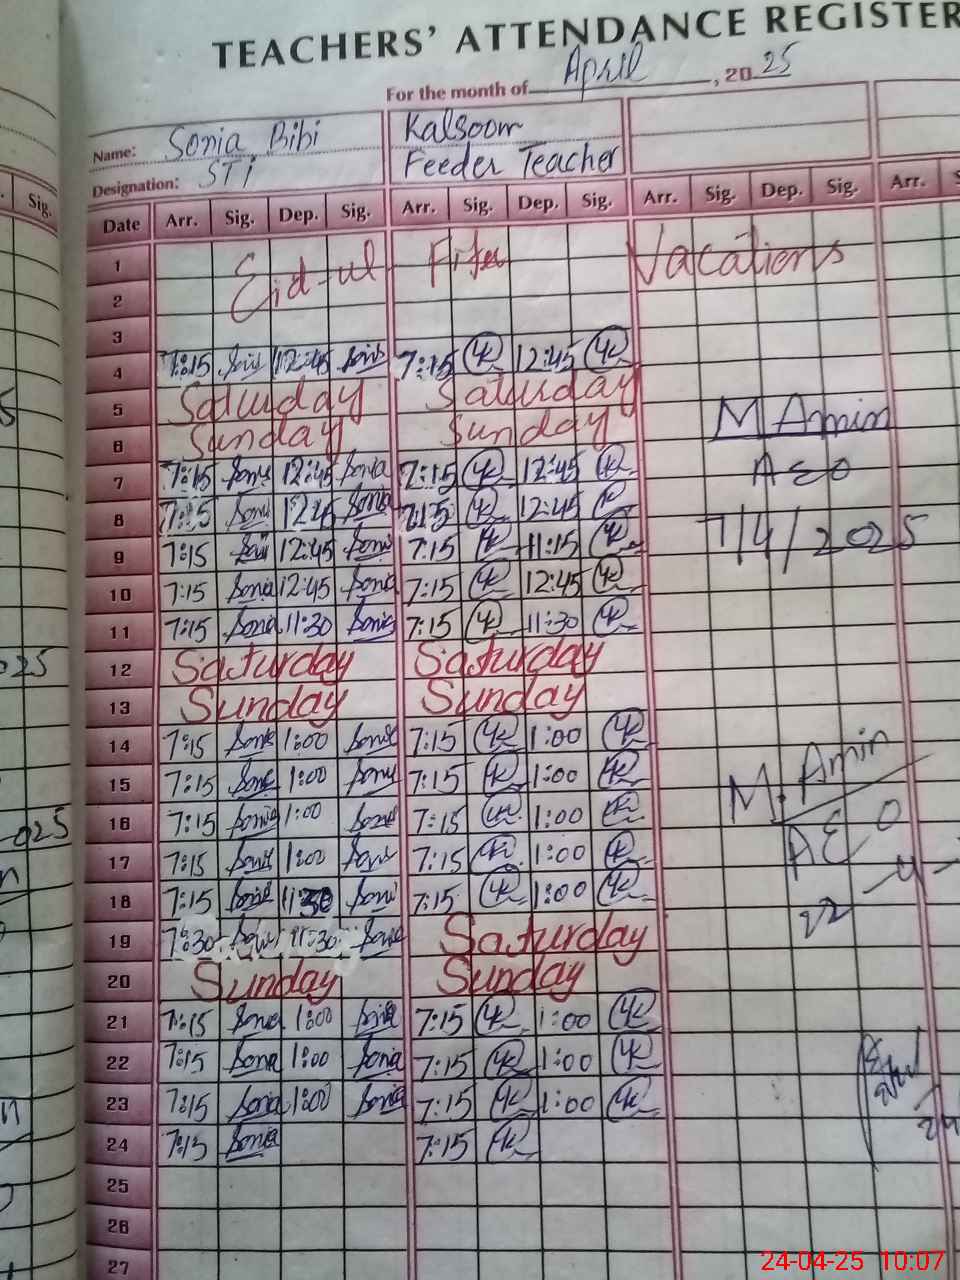 TEACHERS' ATTENDANCE REGISTER
For the month of April, 2025
Name: Sonia Bibi Kalsoom
Designation: STI Feeder Teacher
Sig. Date Arr. Sig. Dep. Sig. Arr. Sig. Dep. Sig. Arr. Sig. Dep. Sig. Arr.
1 Eid-ul Fiter Vacations
2
3
4 7:15 12:45 7:15 12:45
5 Saturday Saturday M Amin
6 Sunday Sunday
7 7:15 Sonia 12:45 Sonia 7:15 12:45 AEO
8 7:15 12:45 Sonia 7:15 12:45 7/4/2025
9 7:15 12:45 7:15 11:15
10 7:15 Sonia 12:45 Sonia 7:15 12:45
11 7:15 Sonia 11:30 Sonia 7:15 11:30
12 Saturday Saturday
13 Sunday Sunday
14 7:15 1:00 7:15 1:00
15 7:15 1:00 7:15 1:00 M. Amin
16 7:15 1:00 7:15 1:00
17 7:15 1:00 7:15 1:00 AEO
18 7:15 7:15 1:00 22-4-
19 7:30 11:30 Saturday
20 Sunday Sunday
21 7:15 Sonia 1:00 7:15 1:00
22 7:15 Sona 1:00 Sonia 7:15 1:00
23 7:15 Sonia 1:00 Sonia 7:15 1:00
24 7:15 Sonia 7:15
25
26
27
24-04-25 10:07